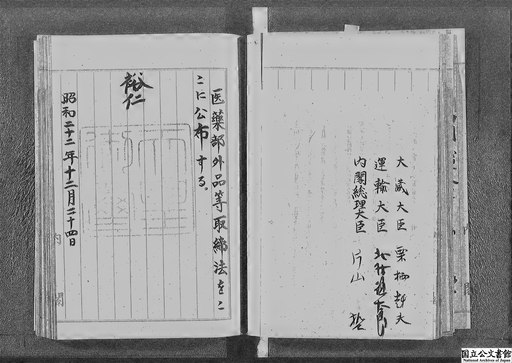 大藏大臣 栗栖赳夫
運輸大臣 北村徳太郎
内閣総理大臣 片山 哲
医薬部外品等取締法をこ
こに公布する。
裕仁
昭和二十二年十二月二十四日
内閣
国立公文書館
National Archives of Japan